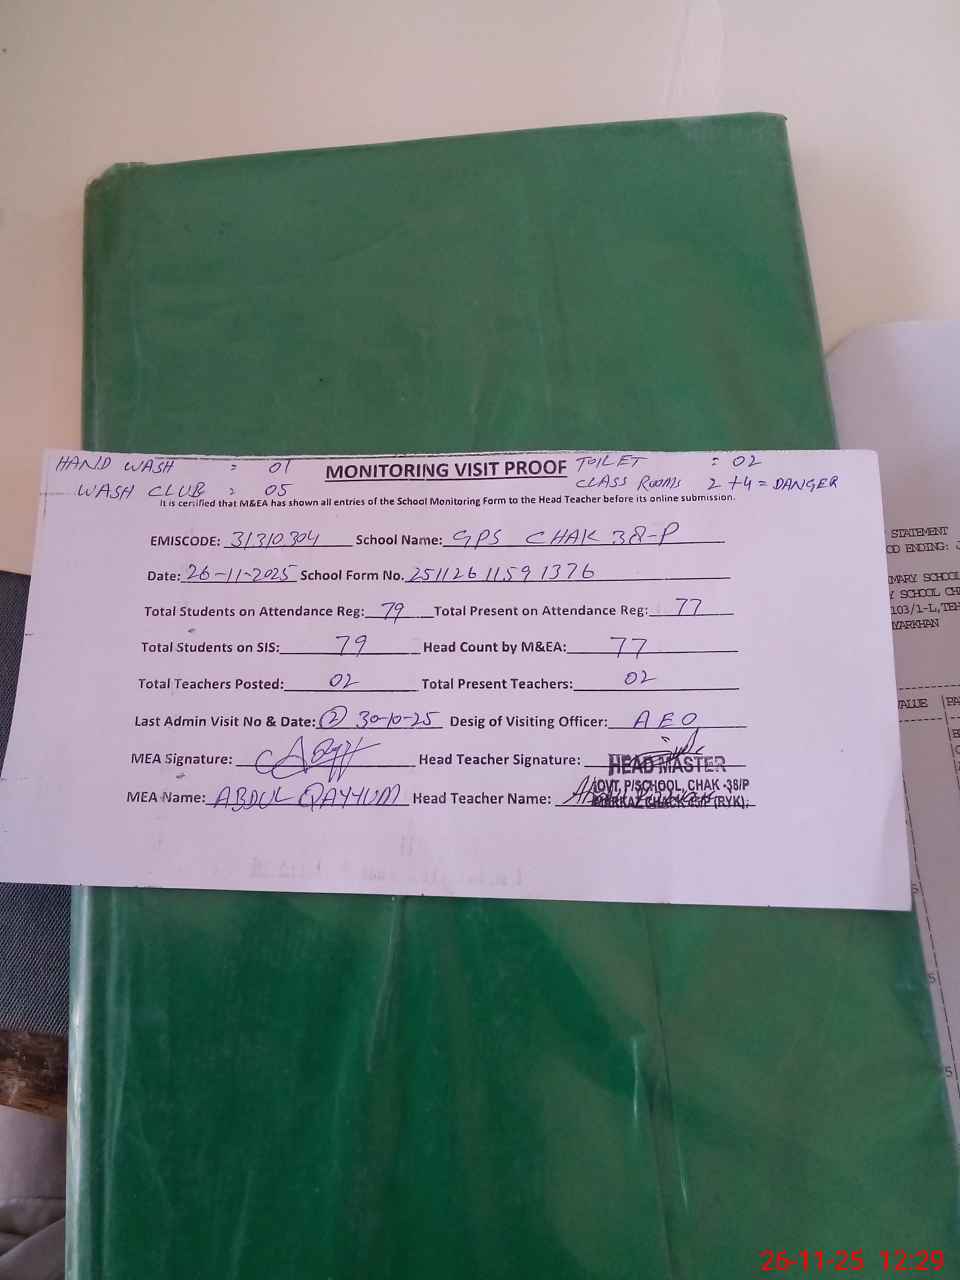 HAND WASH = 01
WASH CLUB = 05
MONITORING VISIT PROOF
TOILET : 02
CLASS ROOMS 2 + 4 = DANGER
It is certified that M&EA has shown all entries of the School Monitoring Form to the Head Teacher before its online submission.
EMISCODE: 31310304 School Name: GPS CHAK 38-P
Date: 26-11-2025 School Form No. 251126 1159 1376
Total Students on Attendance Reg: 79 Total Present on Attendance Reg: 77
Total Students on SIS: 79 Head Count by M&EA: 77
Total Teachers Posted: 02 Total Present Teachers: 02
Last Admin Visit No & Date: (2) 30-10-25 Desig of Visiting Officer: AEO
MEA Signature: Head Teacher Signature:
HEAD MASTER
GOVT, P/SCHOOL, CHAK -38/P
MEA Name: ABDUL QAYYUM Head Teacher Name:
(RYK).
STATEMENT
OD ENDING:
MARY SCHOOL
SCHOOL
103/1-L, TEH
YARKHAN
VALUE
26-11-25 12:29